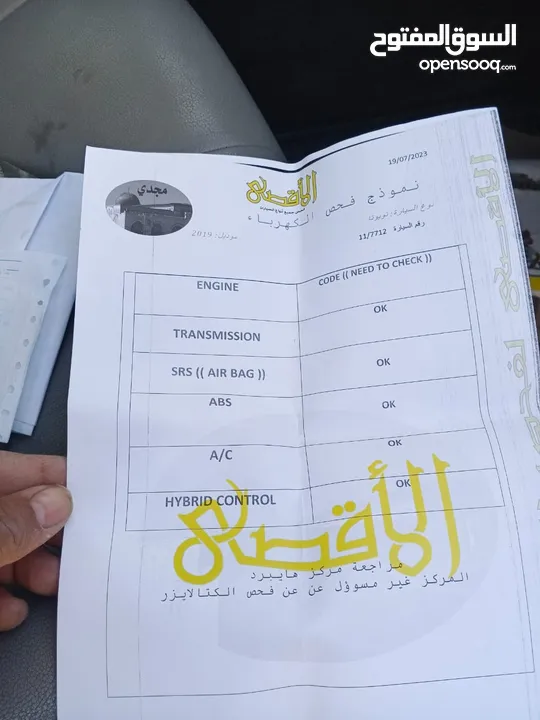 السوق المفتوح
opensooq.com
19/07/2023
مجدي
الأقصى
نموذج فحص الكهرباء
نوع السيارة:
موديل: 2019
رقم السيارة 11/7712
ENGINE
CODE (( NEED TO CHECK ))
TRANSMISSION
OK
SRS (( AIR BAG ))
OK
ABS
OK
A/C
OK
HYBRID CONTROL
OK
الأقصى
مراجعة مركز هايبرد
المركز غير مسؤول عن عن فحص الكتالايزر